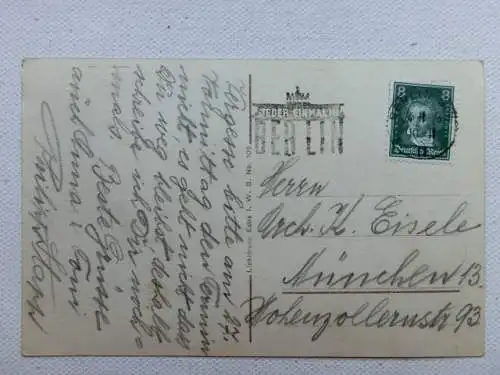 Vergesse bitte am 17.
Vormittag den Termin
nicht, es geht nicht dass
Du weg bleibst deshalb
schreibe ich Dir noch-
mals. Beste Grüsse
auch Anna & Toni
Philipp
JEDER EINMAL IN
BERLIN
8 8
Deutsches Reich
I. W. B. No. 109
Herrn
Arch. K. Eisele
München 13.
Hohenzollernstr 93.